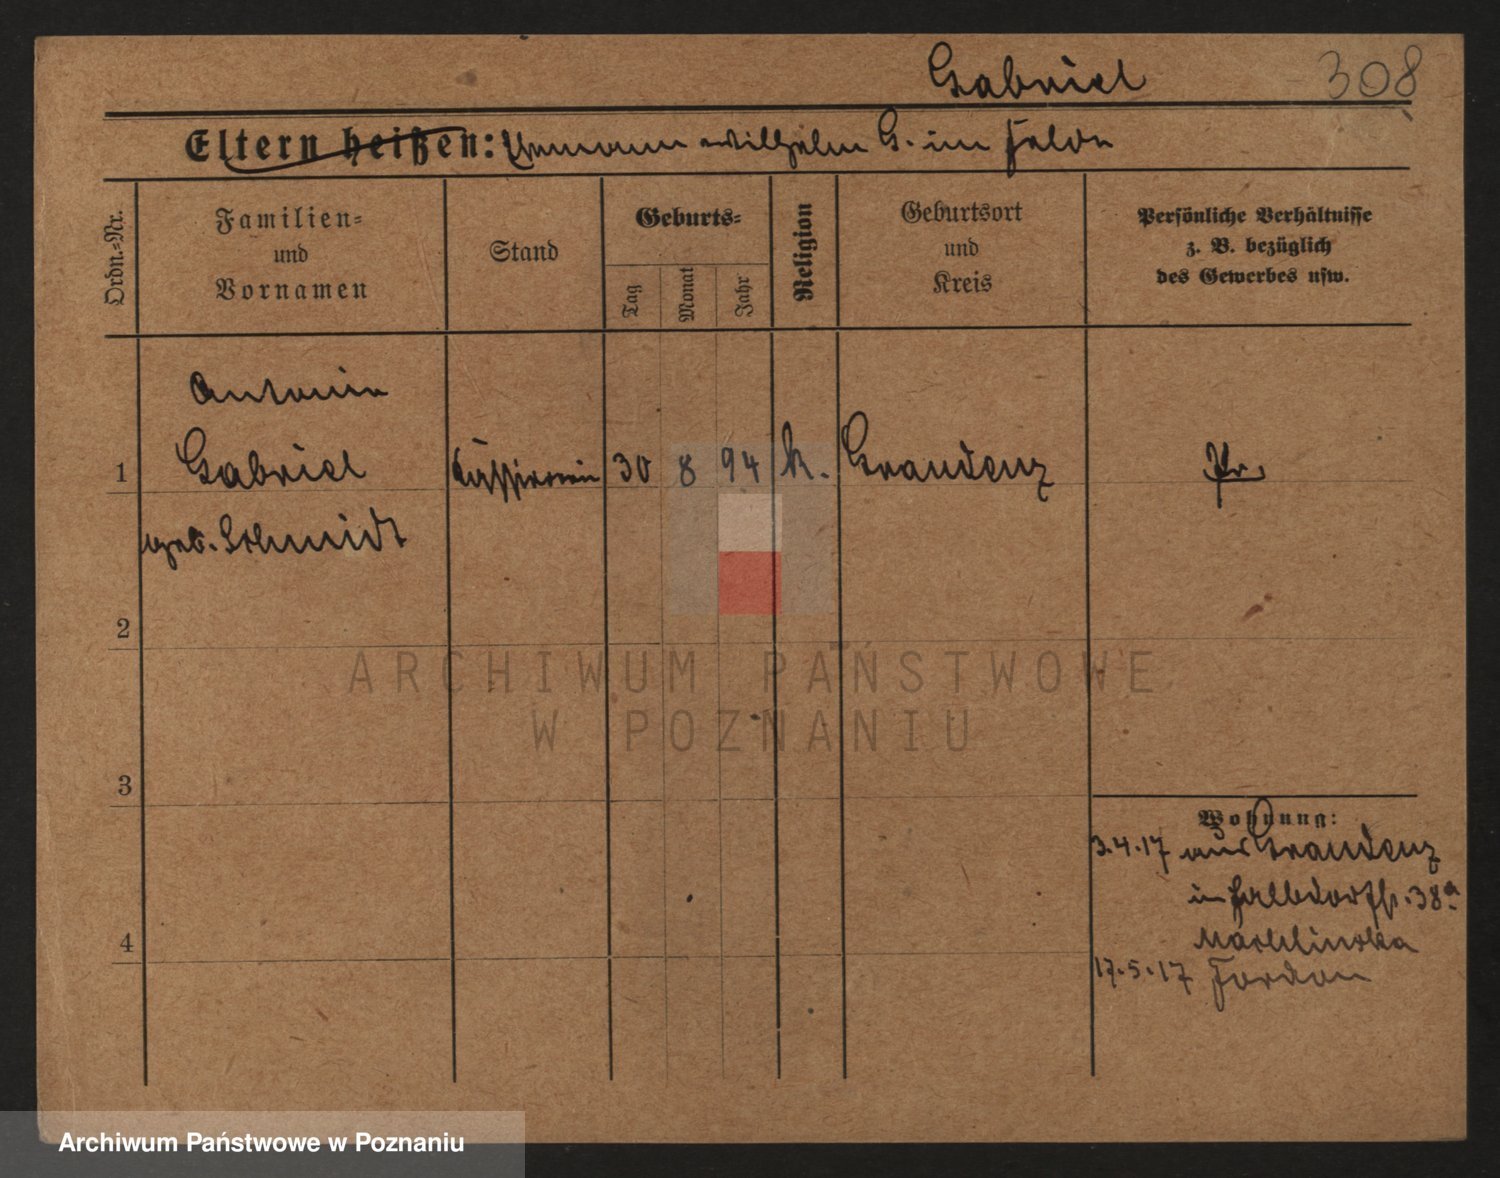 Gabriel 308
Eltern heißen: Ehemann Wilhelm G. im Felde
Ordn.=Nr.
Familien=
und
Vornamen
Stand
Geburts=
Tag
Monat
Jahr
Religion
Geburtsort
und
Kreis
Persönliche Verhältnisse
z. B. bezüglich
des Gewerbes usw.
Antonie
1 Gabriel Kassirerin 30 8 94 k. Graudenz Pr.
geb. Schmidt
2
3
4
Wohnung:
3.4.17 aus Graudenz
in 38a
17.5.17 Fordon
ARCHIWUM PAŃSTWOWE
W POZNANIU
Archiwum Państwowe w Poznaniu